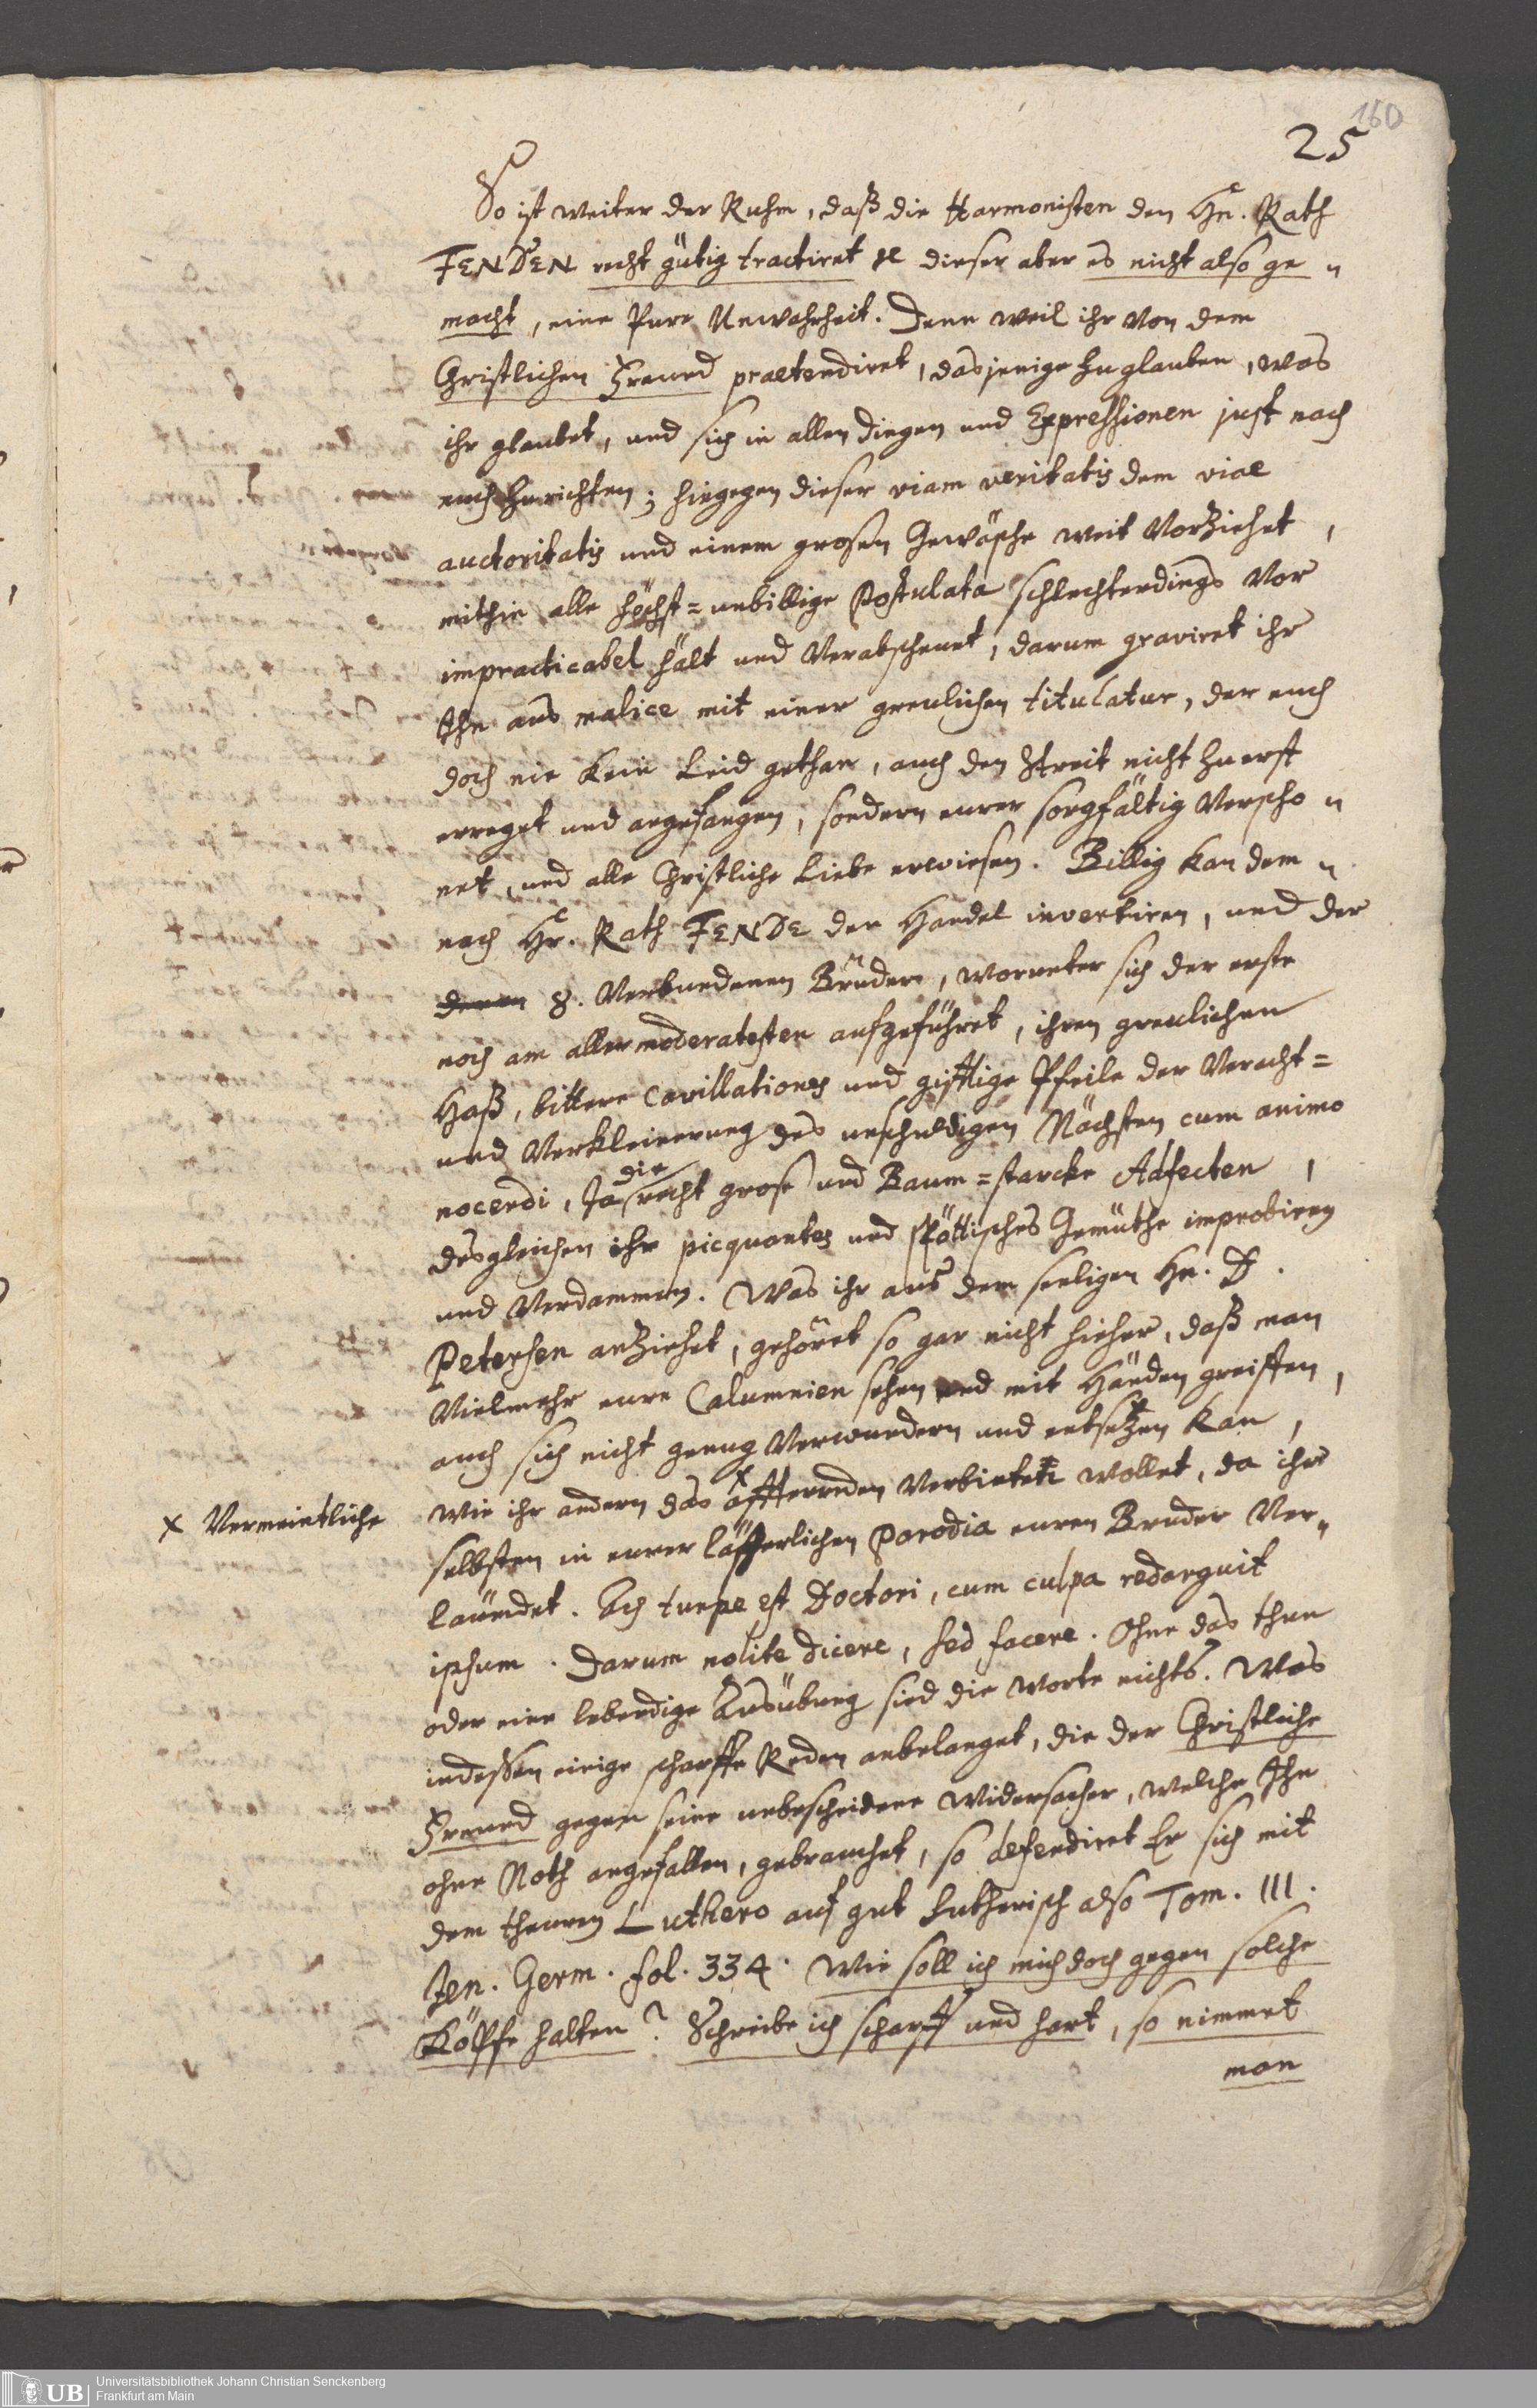 160
25
So ist weiter der Ruhm, daß die Harmonisten den Hn. Rath
FENDEN recht gütig tractiret sc dieser aber es nicht also ge"
macht, eine Pure Unwahrheit. Denn weil ihr Von dem
Christlichen Freund praetendiret, dasjenige zu glauben, was
ihr glaubet, und sich in allen dingen und Expressionen just nach
euch zu richten; hingegen dieser viam veritatis dem viae
auctoritatis und einem grosen Gewäsche weit Vorziehet,
mithin alle höchst=unbillige Postulata schlechterdings Vor
impracticabel hält und Verabscheuet, darum graviret ihr
Ihn aus malice mit einer greulichen titulatur, der euch
doch nie kein Leid gethan, auch den Streit nicht zu erst
erreget und angefangen, sondern eurer sorgfältig Verscho"
net, und alle Christliche Liebe erwiesen. Billig kan dem"
nach Hr. Rath FENDE den Handel invertiren, und der
denen 8. Verbundenen Brüdern, worunter sich der erste
noch am aller moderatesten aufgeführet, ihren greulichen
Haß, bittere Cavillationes und gifftige Pfeile der Veracht=
und Verkleinerung des unschuldigen Nächsten cum animo
nocendi, Ja die recht grose und Baum=starcke Adfecten,
desgleichen ihr picquantes und spöttisches Gemüthe improbiren
und Verdammen. Was ihr aus dem seeligen Hn. D.
Petersen anziehet, gehöret so gar nicht hieher, daß man
Vielmehr eure Calumnien sehen und mit Händen greiffen,
auch sich nicht genug Verwundern und entsetzen kan,
wie ihr andern das x affterreden Verbieten wollet, da ihr
x Vermeintliche
selbsten in eurer lästerlichen Parodia euren Bruder Ver"
läumdet. Ach turpe est Doctori, cum culpa redarguit
ipsum. Darum nolite dicere, sed facere. Ohne das thun
oder eine lebendige Ausübung sind die Worte nichts. Was
indessen einige scharffe Reden anbelanget, die der Christliche
Freund gegen seine unbescheidene Widersacher, welche Ihn
ohne Noth angefallen, gebrauchet, so defendiret Er sich mit
dem theuren Luthero auf gut Lutherisch also Tom. III.
Jen. Germ. fol. 334. Wie soll ich mich doch gegen solche
Köpffe halten? Schreibe ich scharff und hart, so nimmet
man
UB
Universitätsbibliothek Johann Christian Senckenberg
Frankfurt am Main